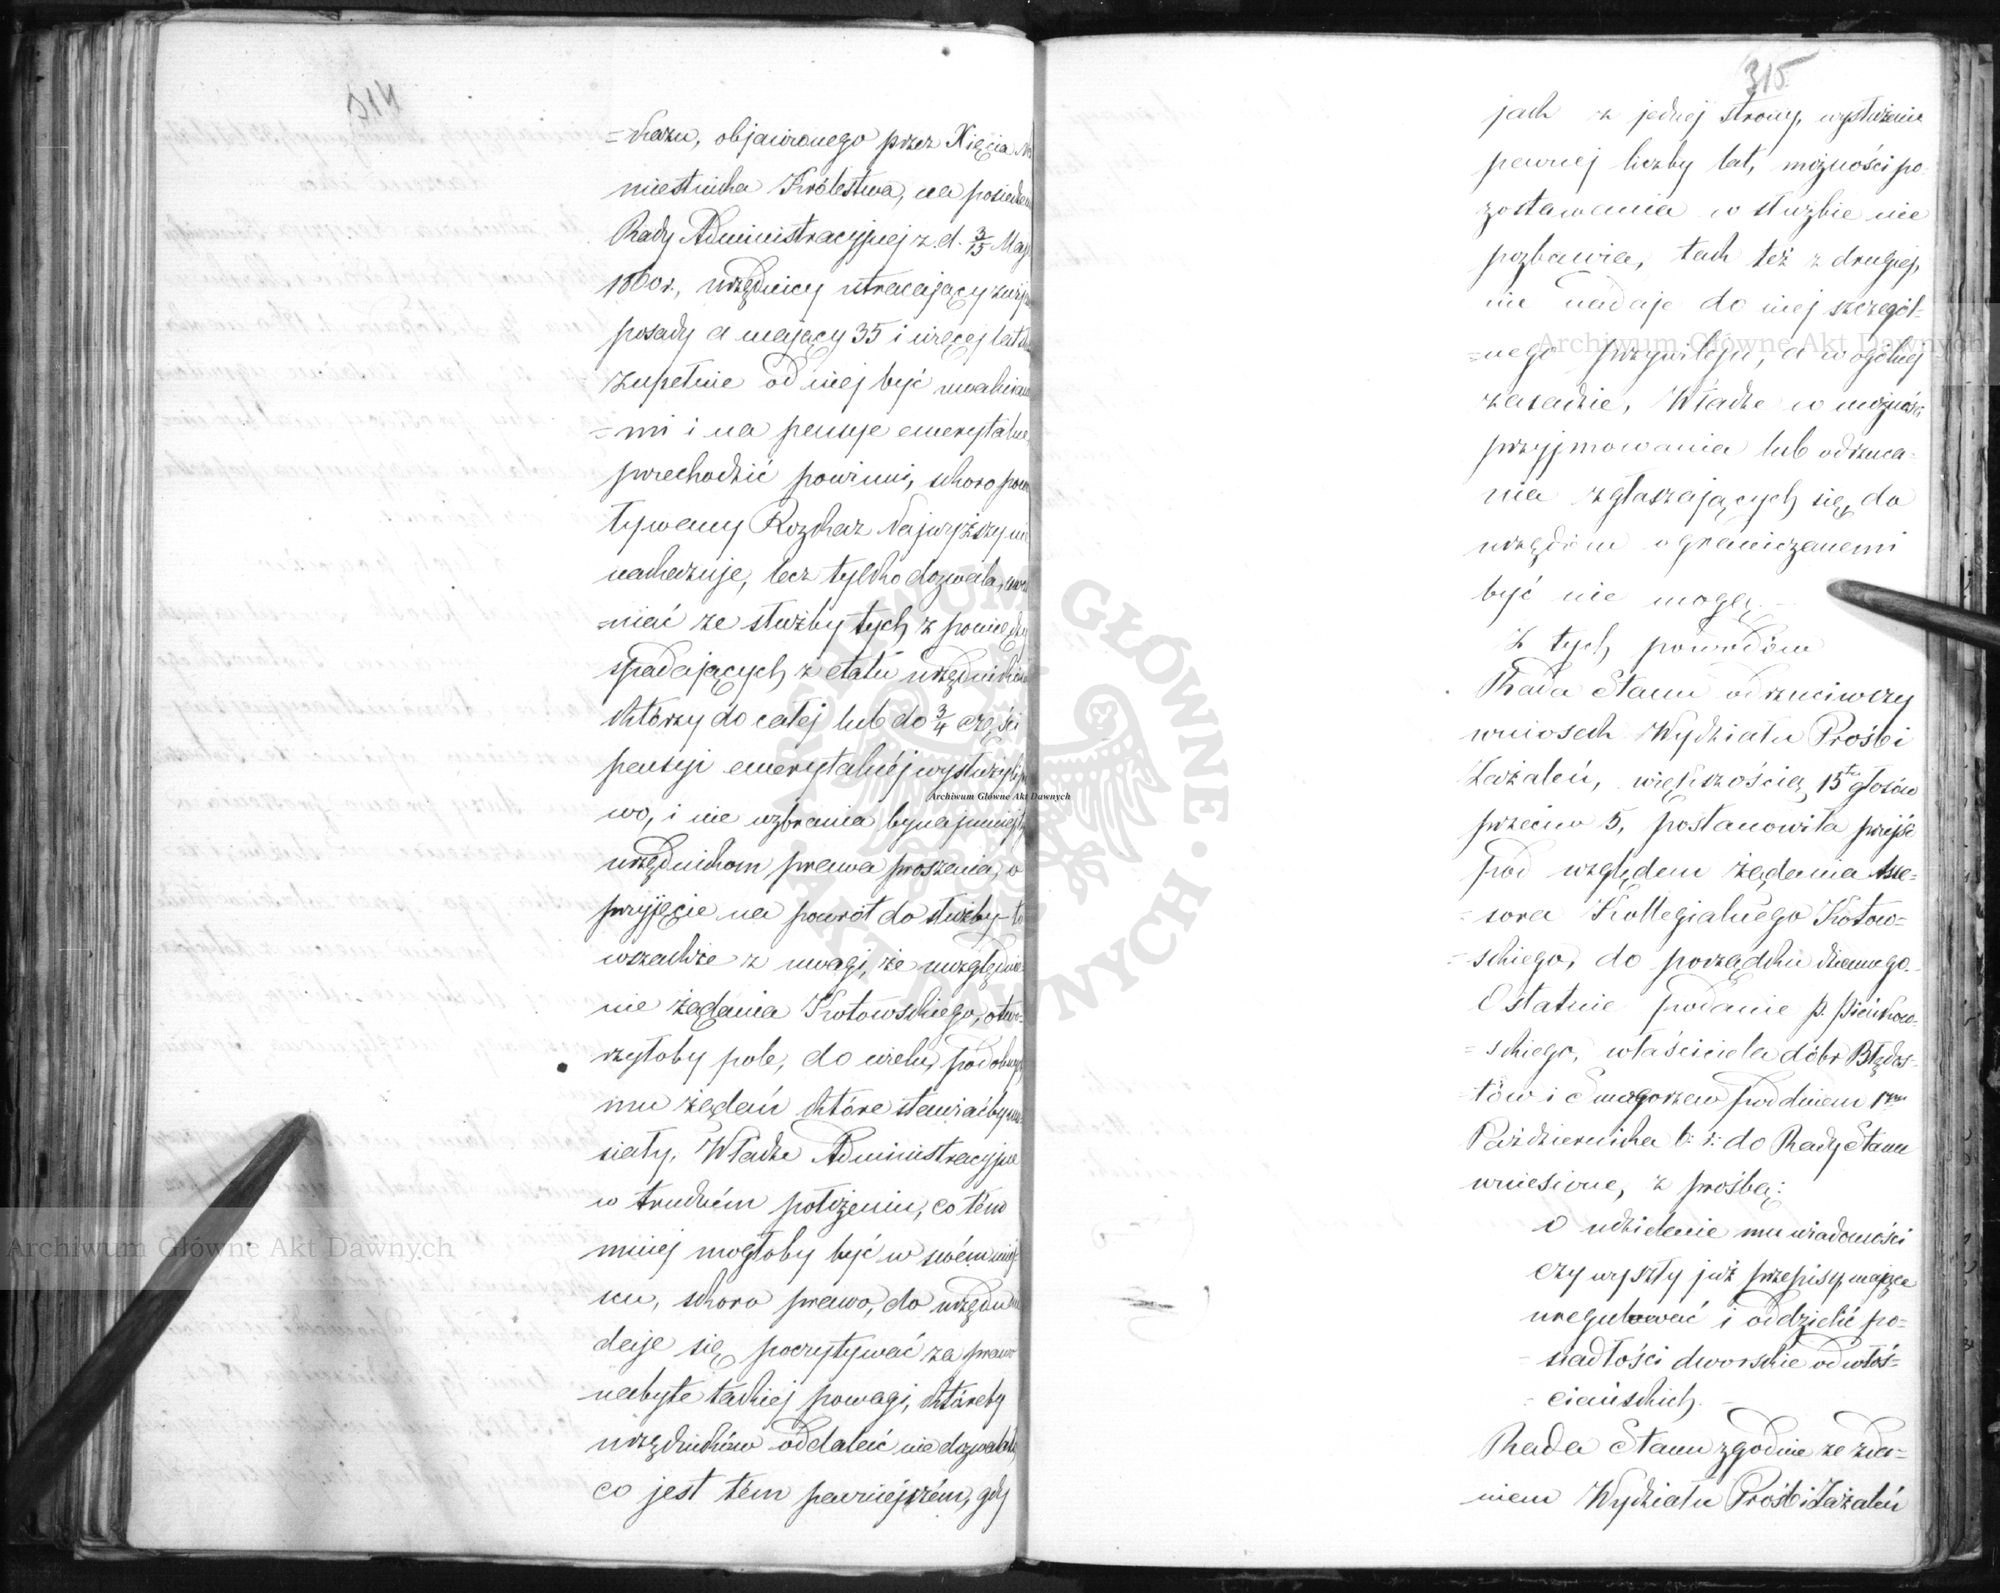 314
=kazu, objawionego przez Xięcia Na
miestnika Królestwa, na posiedzeniu
Rady Administracyjnej z d. 3/15 Maj
1860 r., urzędnicy utracający swoje
posady a mający 35 i więcej lat
zupełnie od niej być uwalniane
=mi i na pensje emerytalne
przechodzić powinni, skoro powo
ływany Rozkaz Najwyższy nie
nakazuje, lecz tylko dozwala, uwal
=niać ze służby tych z pomiędzy
spadających z etatu urzędników
którzy do całej lub do 3/4 części
pensyi emerytalnéj wysłużyli pra
wo, i nie wzbrania bynajmniej tym
urzędnikom prawa proszenia, o
przyjęcie na powrót do służby – to
wszakże z uwagi, że uwzględnie
nie żądania Kotowskiego, otwo=
rzyłoby pole, do wielu, podobnych
mu żądań które stawiaćby mu
siały, Władze Administracyjne
w trudném położeniu, co tém
mniej mogłoby być w swém miej
scu, skoro prawo, do urzędu nie
daje się poczytywać za prawo
nabyte takiej powagi, któreby
urzędników oddalać nie dozwalało,
co jest tém pewniejszém, gdy
315
jak z jednej strony, wysłużenie
pewnej liczby lat, możności po=
zostawania w służbie nie
pozbawia, tak też z drugiej,
nie nadaje do niej szczegól=
=nego przywileju, a w ogólnej
zasadzie, Władze w możności
przyjmowania lub odrzuca=
nia zgłaszających się, do
urzędów ograniczanemi
być nie mogą. –
Z tych powodów
Rada Stanu odrzuciwszy
wniosek Wydziału Próśb i
Zażaleń, większością 15tu głosów
przeciw 5, postanowiła przejść
pod względem żądania Asse=
=sora Kollegialnego Kotow=
=skiego, do porządku dziennego.
Ostatnie podanie p. Pieńkow=
=skiego, właściciela dóbr Błędos=
=tów i Smogorzew pod dniem 1szym
Października b: r: do Rady Stanu
wniesione, z prośbą:
o udzielenie mu wiadomości
czy wyszły już przepisy, mające
uregulować i oddzielić po=
=siadłości dworskie od włoś=
=ciańskich. –
Rada Stanu zgodnie ze zda=
niem Wydziału Próśb i Zażaleń
Archiwum Główne Akt Dawnych
Archiwum Główne Akt Dawnych
Archiwum Główne Akt Dawnych
ARCHIWUM GŁÓWNE AKT DAWNYCH